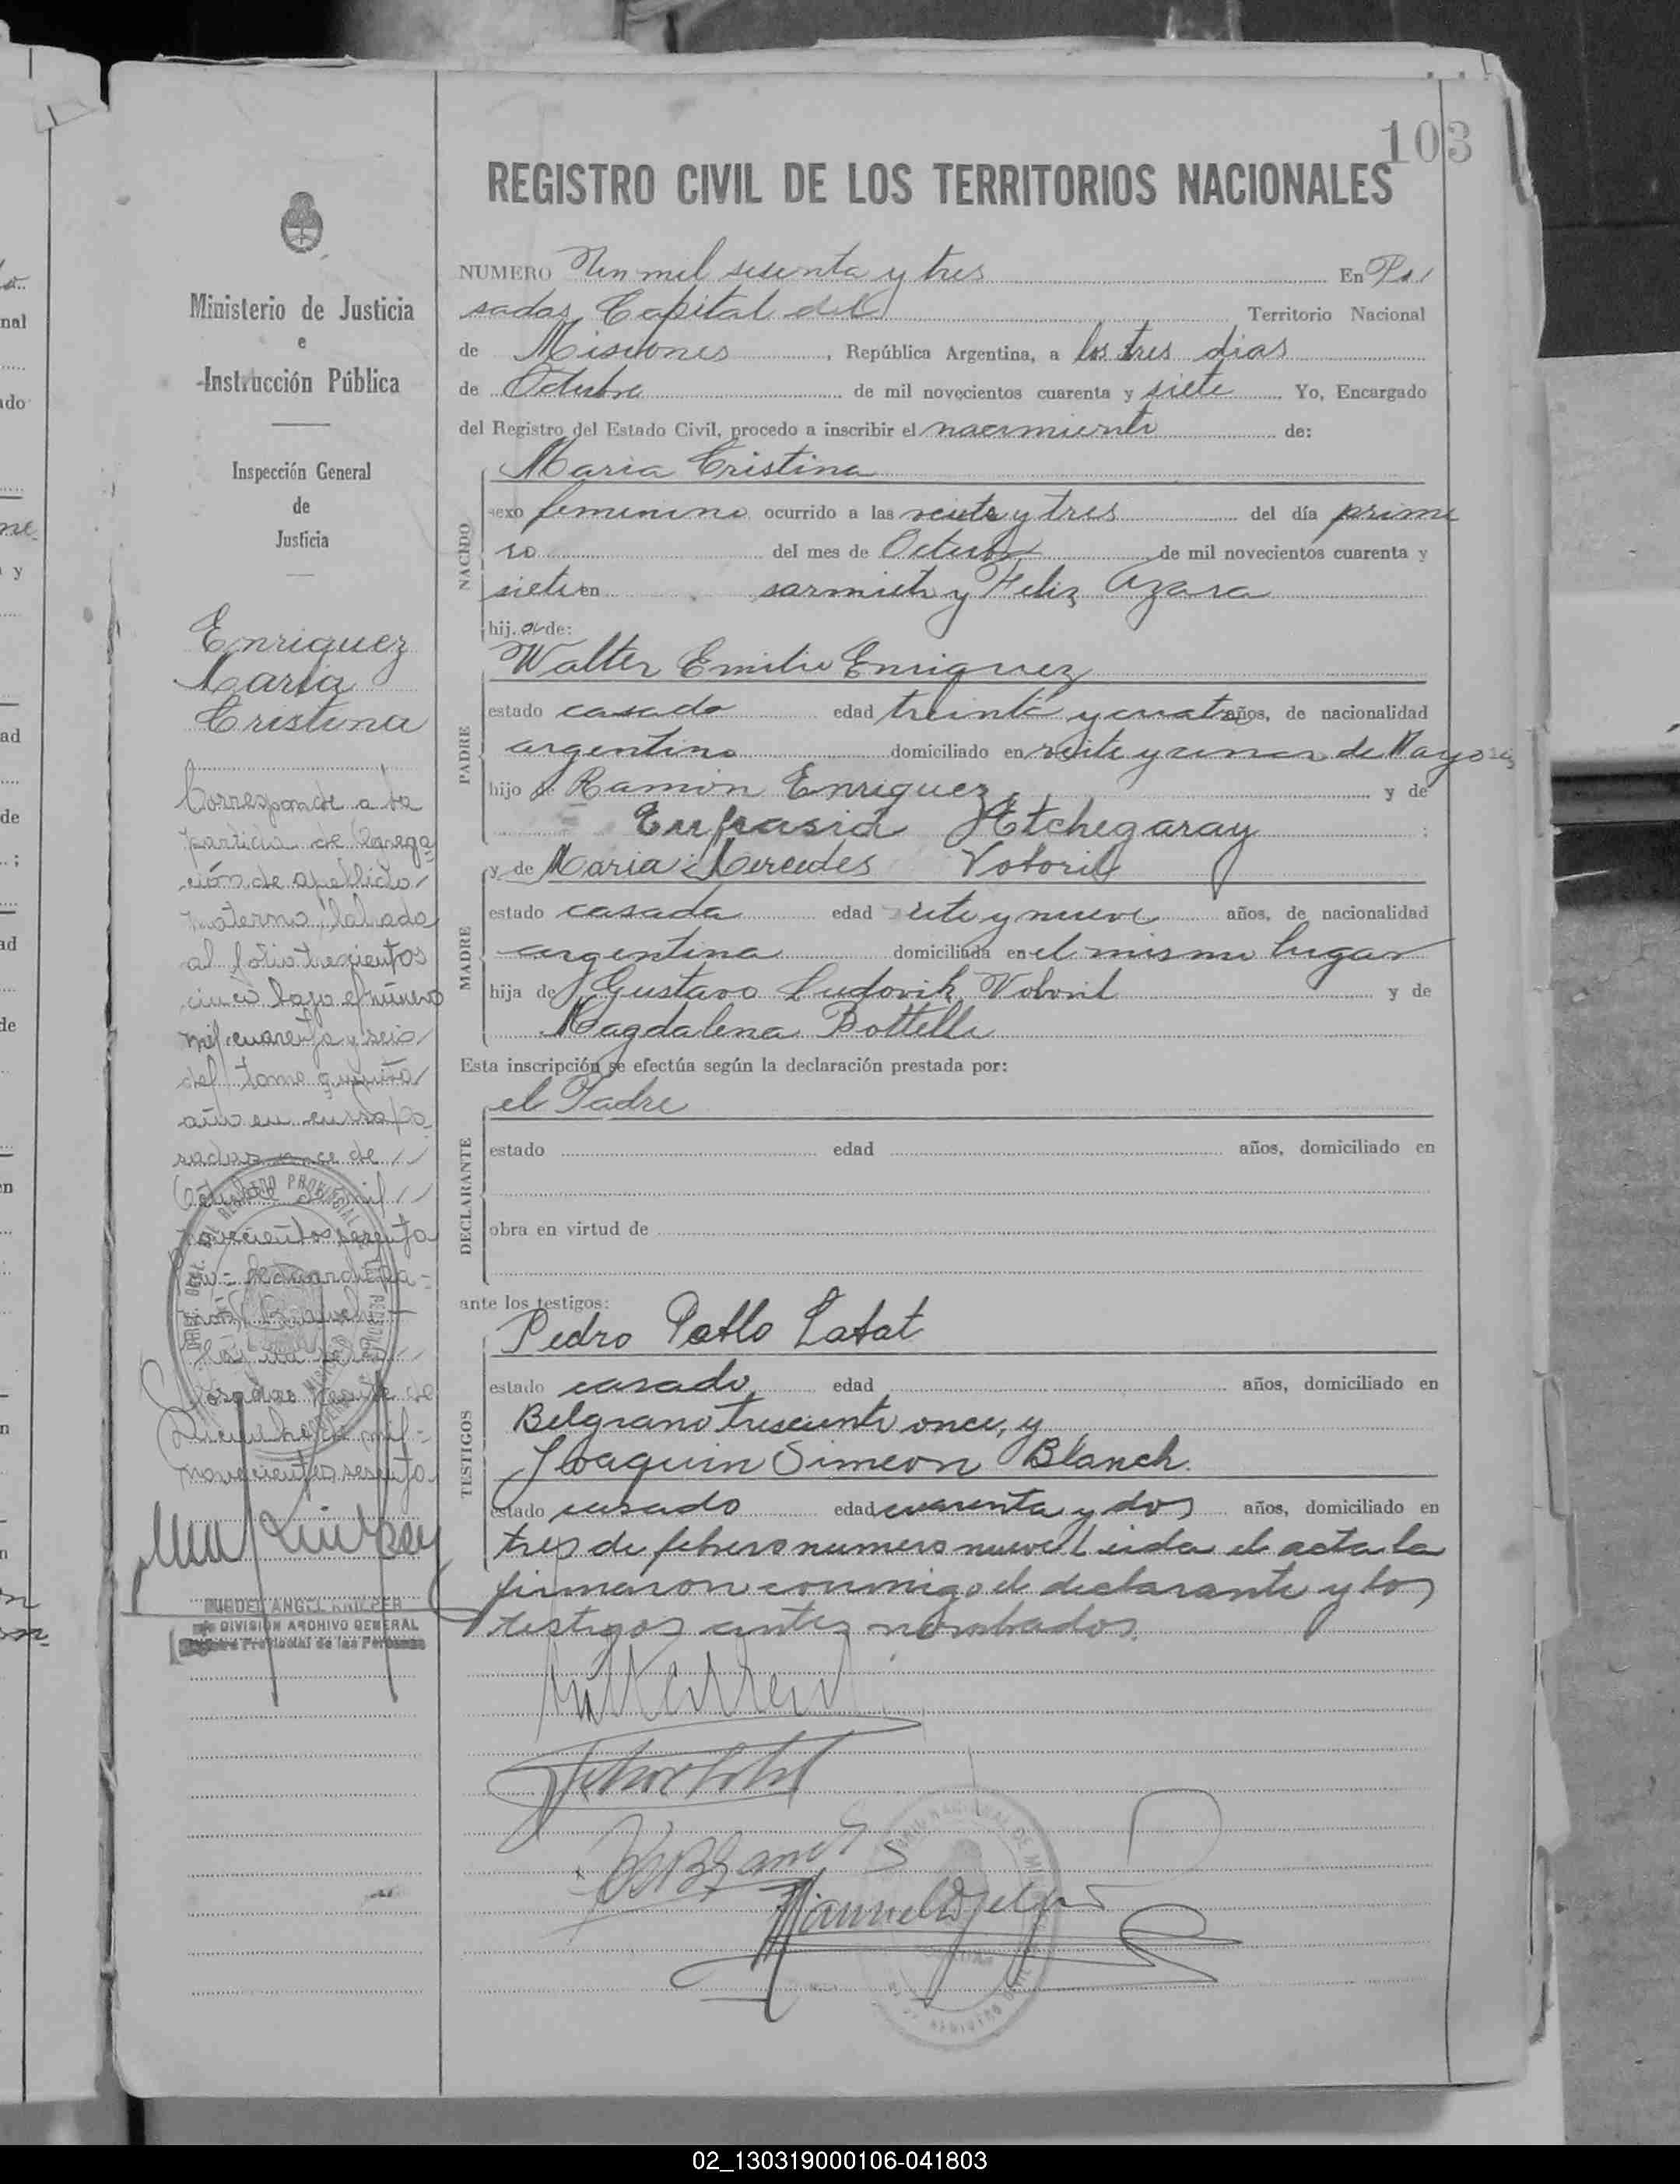 103
REGISTRO CIVIL DE LOS TERRITORIOS NACIONALES
Ministerio de Justicia
e
Instrucción Pública
Inspección General
de
Justicia
Enriquez
Maria
Cristina
Corresponde a la
partida de
ción de apellido
materno labrada
al folio trescientos
cinco bajo el número
mil cuarenta y seis
del tomo quinto
año en curso Po
sadas once de
Octubre de mil
novecientos sesenta
Posadas
de mil
novecientos sesenta
MIGUEL ANGEL KNILPER
DIVISION ARCHIVO GENERAL
Provincial de las Personas
NUMERO Un mil sesenta y tres En Po
sadas Capital del Territorio Nacional
de Misiones , República Argentina, a los tres dias
de Octubre de mil novecientos cuarenta y siete Yo, Encargado
del Registro del Estado Civil, procedo a inscribir el nacimiento de:
NACIDO
Maria Cristina
sexo femenino ocurrido a las veinte y tres del día prime
ro del mes de Octubre de mil novecientos cuarenta y
siete en sarmiento y Feliz Azara
hija de:
PADRE
Walter Emilio Enriquez
estado casado edad treinta y cuatro años, de nacionalidad
argentino domiciliado en de Mayo
hijo de Ramón Enriquez y de
Eufrasia Etchegaray
MADRE
y de Maria Mercedes Voboril
estado casada edad y nueve años, de nacionalidad
argentina domiciliada en el mismo lugar
hija de Gustavo Ludovik Voboril y de
Magdalena Bottelli
Esta inscripción se efectúa según la declaración prestada por:
DECLARANTE
el Padre
estado edad años, domiciliado en
obra en virtud de
ante los testigos:
TESTIGOS
Pedro Pablo Labat
estado casado edad años, domiciliado en
Belgrano trescientos once, y
Joaquin Simeon Blanch.
estado casado edad cuarenta y dos años, domiciliado en
tres de febrero numero nueve Leida el acta la
firmaron conmigo el declarante y los
testigos antes nombrados.
02_130319000106-041803